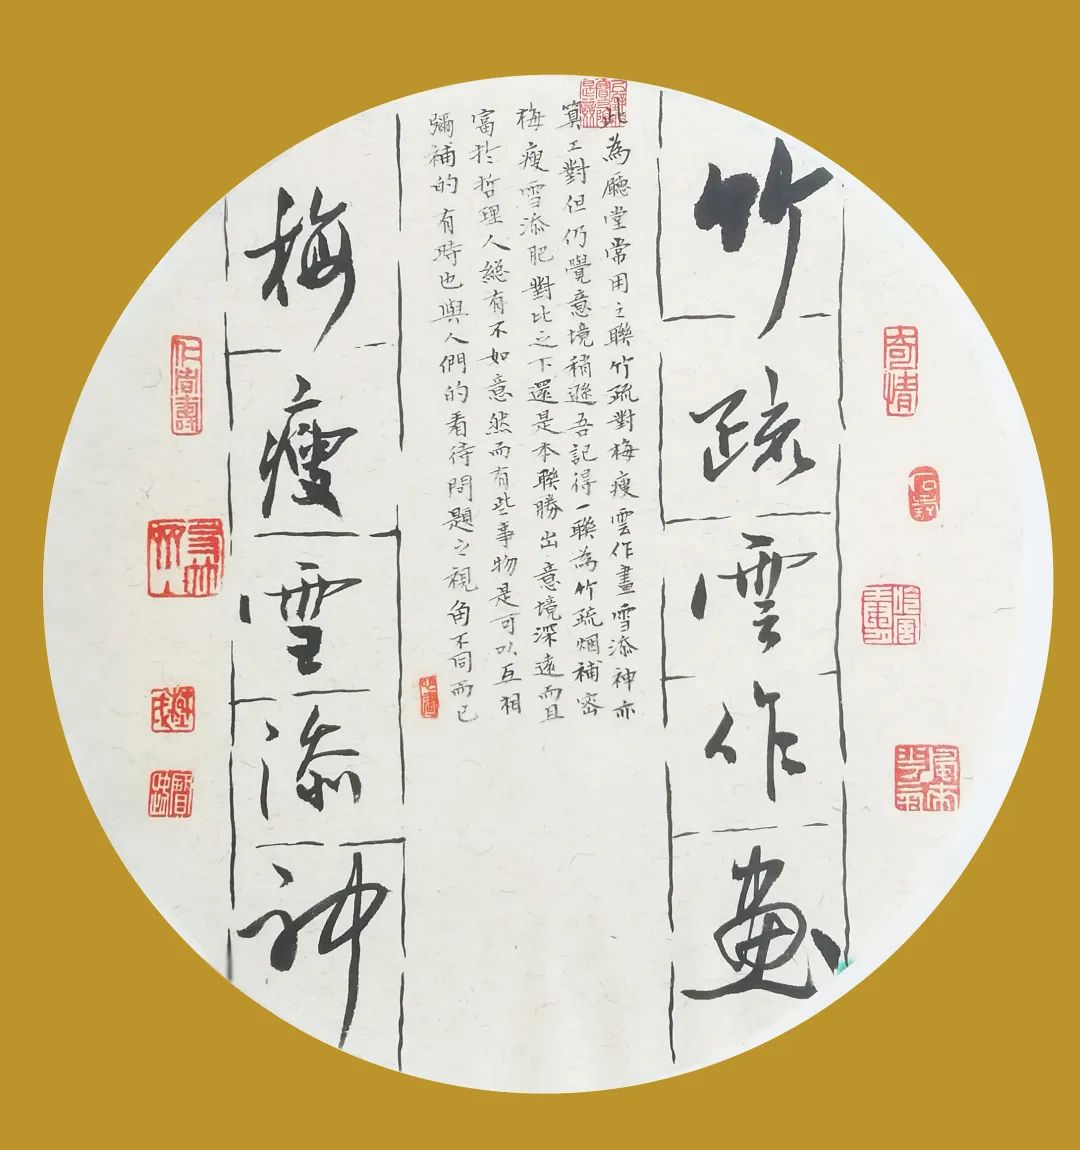 竹疏雲作畫
此為廳堂常用之聯竹疏對梅瘦雲作畫雪添神亦
算工對但仍覺意境稍遜吾記得一聯為竹疏烟補密
梅瘦雪添肥對比之下還是本聯勝出意境深遠而且
富於哲理人總有不如意然而有些事物是可以互相
彌補的有時也與人們的看待問題之視角不同而已
梅瘦雪添神
寄情